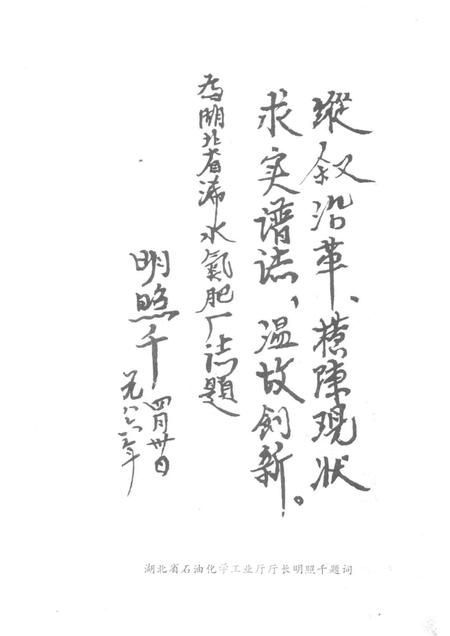 縱叙沿革、横陳現状
求实谱志，温故創新。
為湖北省浠水氮肥厂志題
明照千
四月卅日
湖北省石油化学工业厅厅长明照千题词